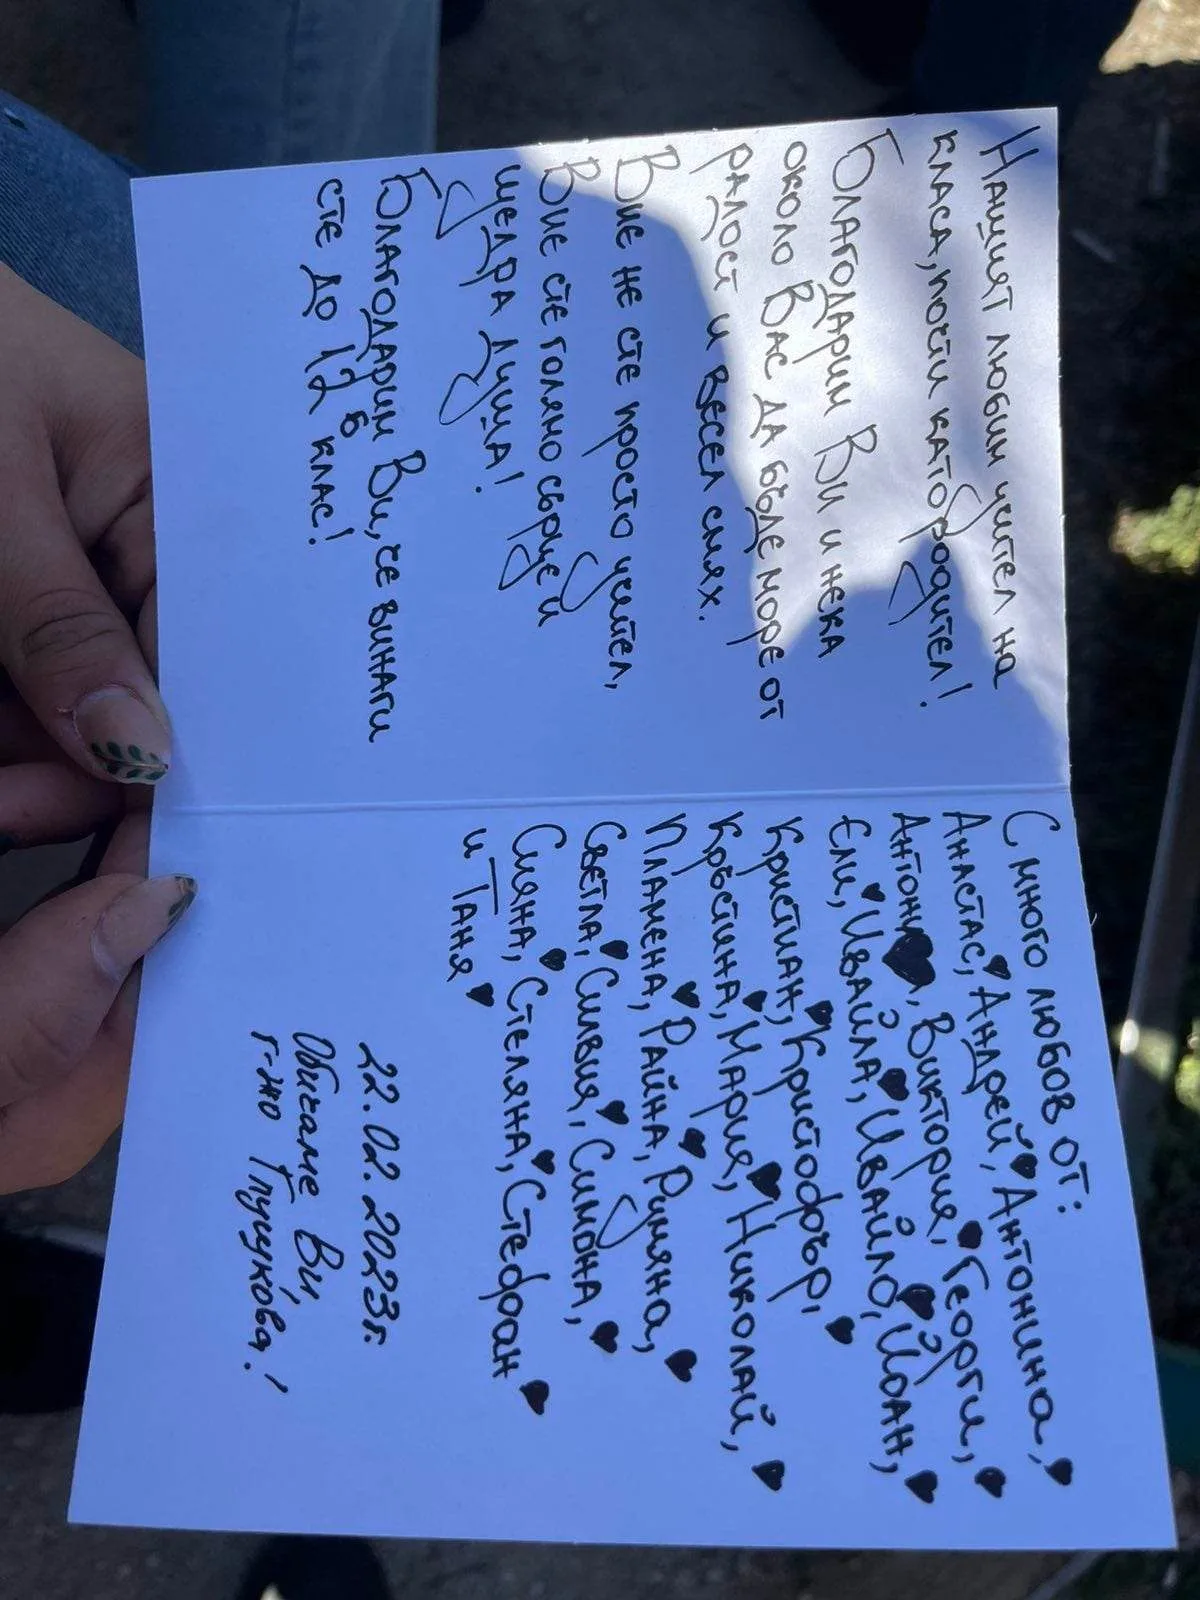 Нашият любим учител на
класа, почти като родител!
Благодарим Ви и нека
около Вас да бъде море от
радост и весел смях.
Вие не сте просто учител,
Вие сте голямо сърце и
щедра душа!
Благодарим Ви, че винаги
сте до 12б клас!
С много любов от:
Анастас, Андрей, Антонина,
Антони, Виктория, Георги,
Ели, Ивайла, Ивайло, Йоан,
Кристиан, Кристофър,
Кръстина, Мария, Николай,
Пламена, Райна, Румяна,
Светла, Силвия, Симона,
Сияна, Стеляна, Стефан
и Таня
22.02.2023г.
Обичаме Ви,
г-жо Глушкова!